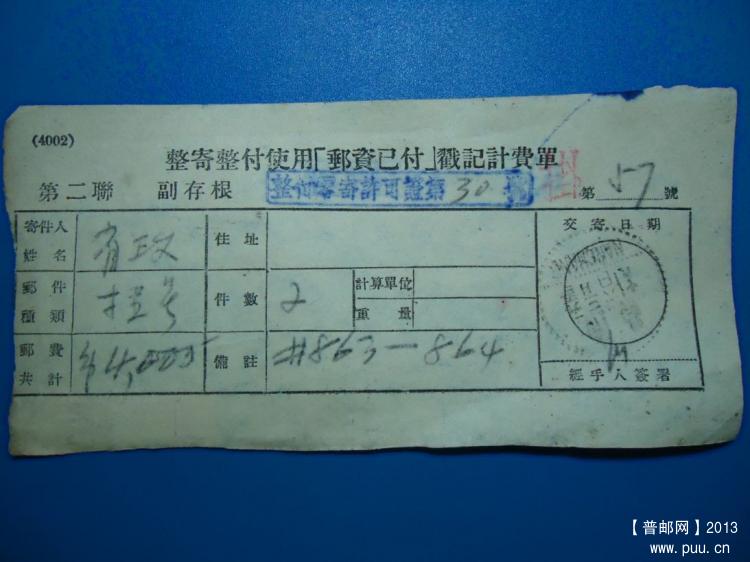 (4002)
整寄整付使用「郵資已付」戳記計費單
第二聯 副存根 整付零寄許可證第30號 第57號
寄件人姓名 省政 住址 交寄日期
郵件種類 挂号 件數 2 計算單位
重量
郵費共計 4,000 備註 #863—864
經手人簽署
【普邮网】2013
www.puu.cn